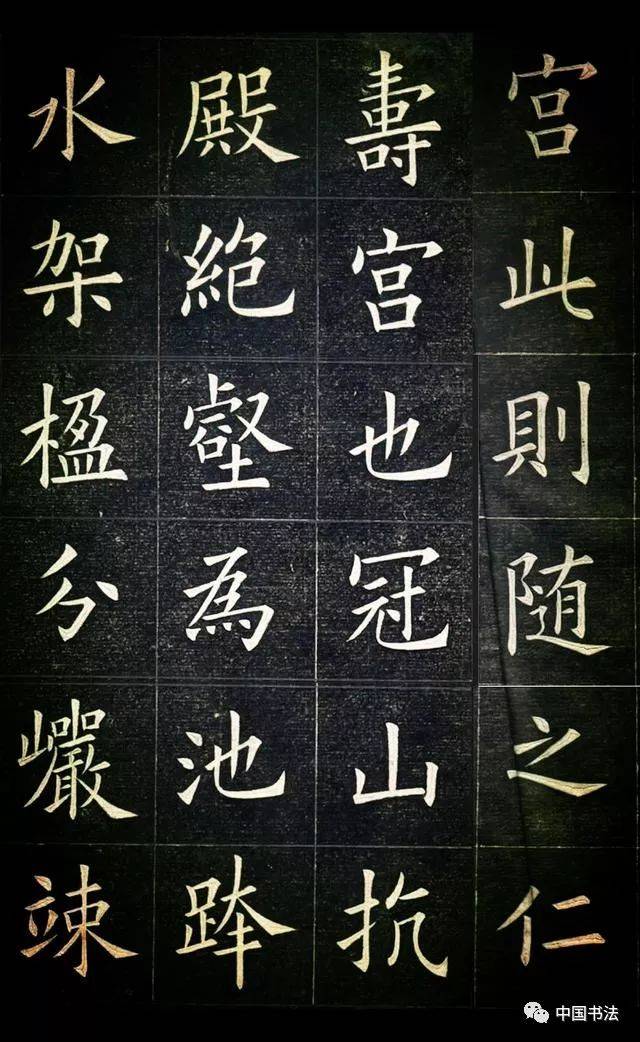 宫此則随之仁
壽宫也冠山抗
殿絶壑為池跨
水架楹分巖竦
中国书法